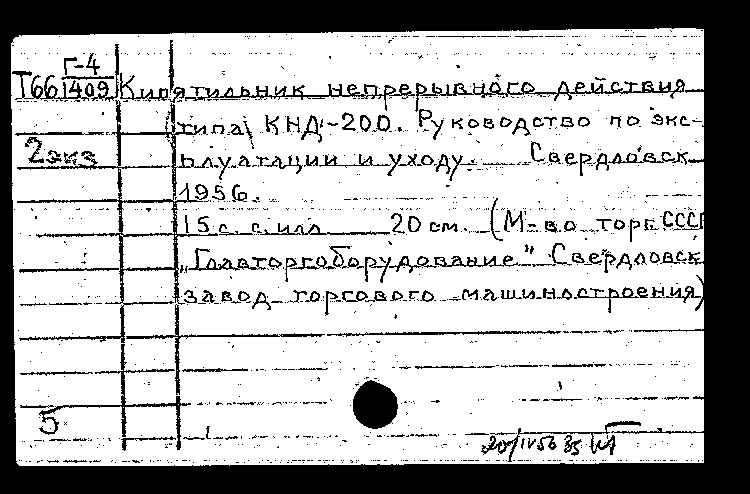 Г-4
Т66 1409 Кипятильник непрерывного действия
(типа) КНД-200. Руководство по экс-
2 экз
плуатации и уходу. Свердловск
1956.
15 с. с илл 20 см. (М-во торг. СССР
„Главторгоборудование" Свердловск
завод торгового машиностроения)
5